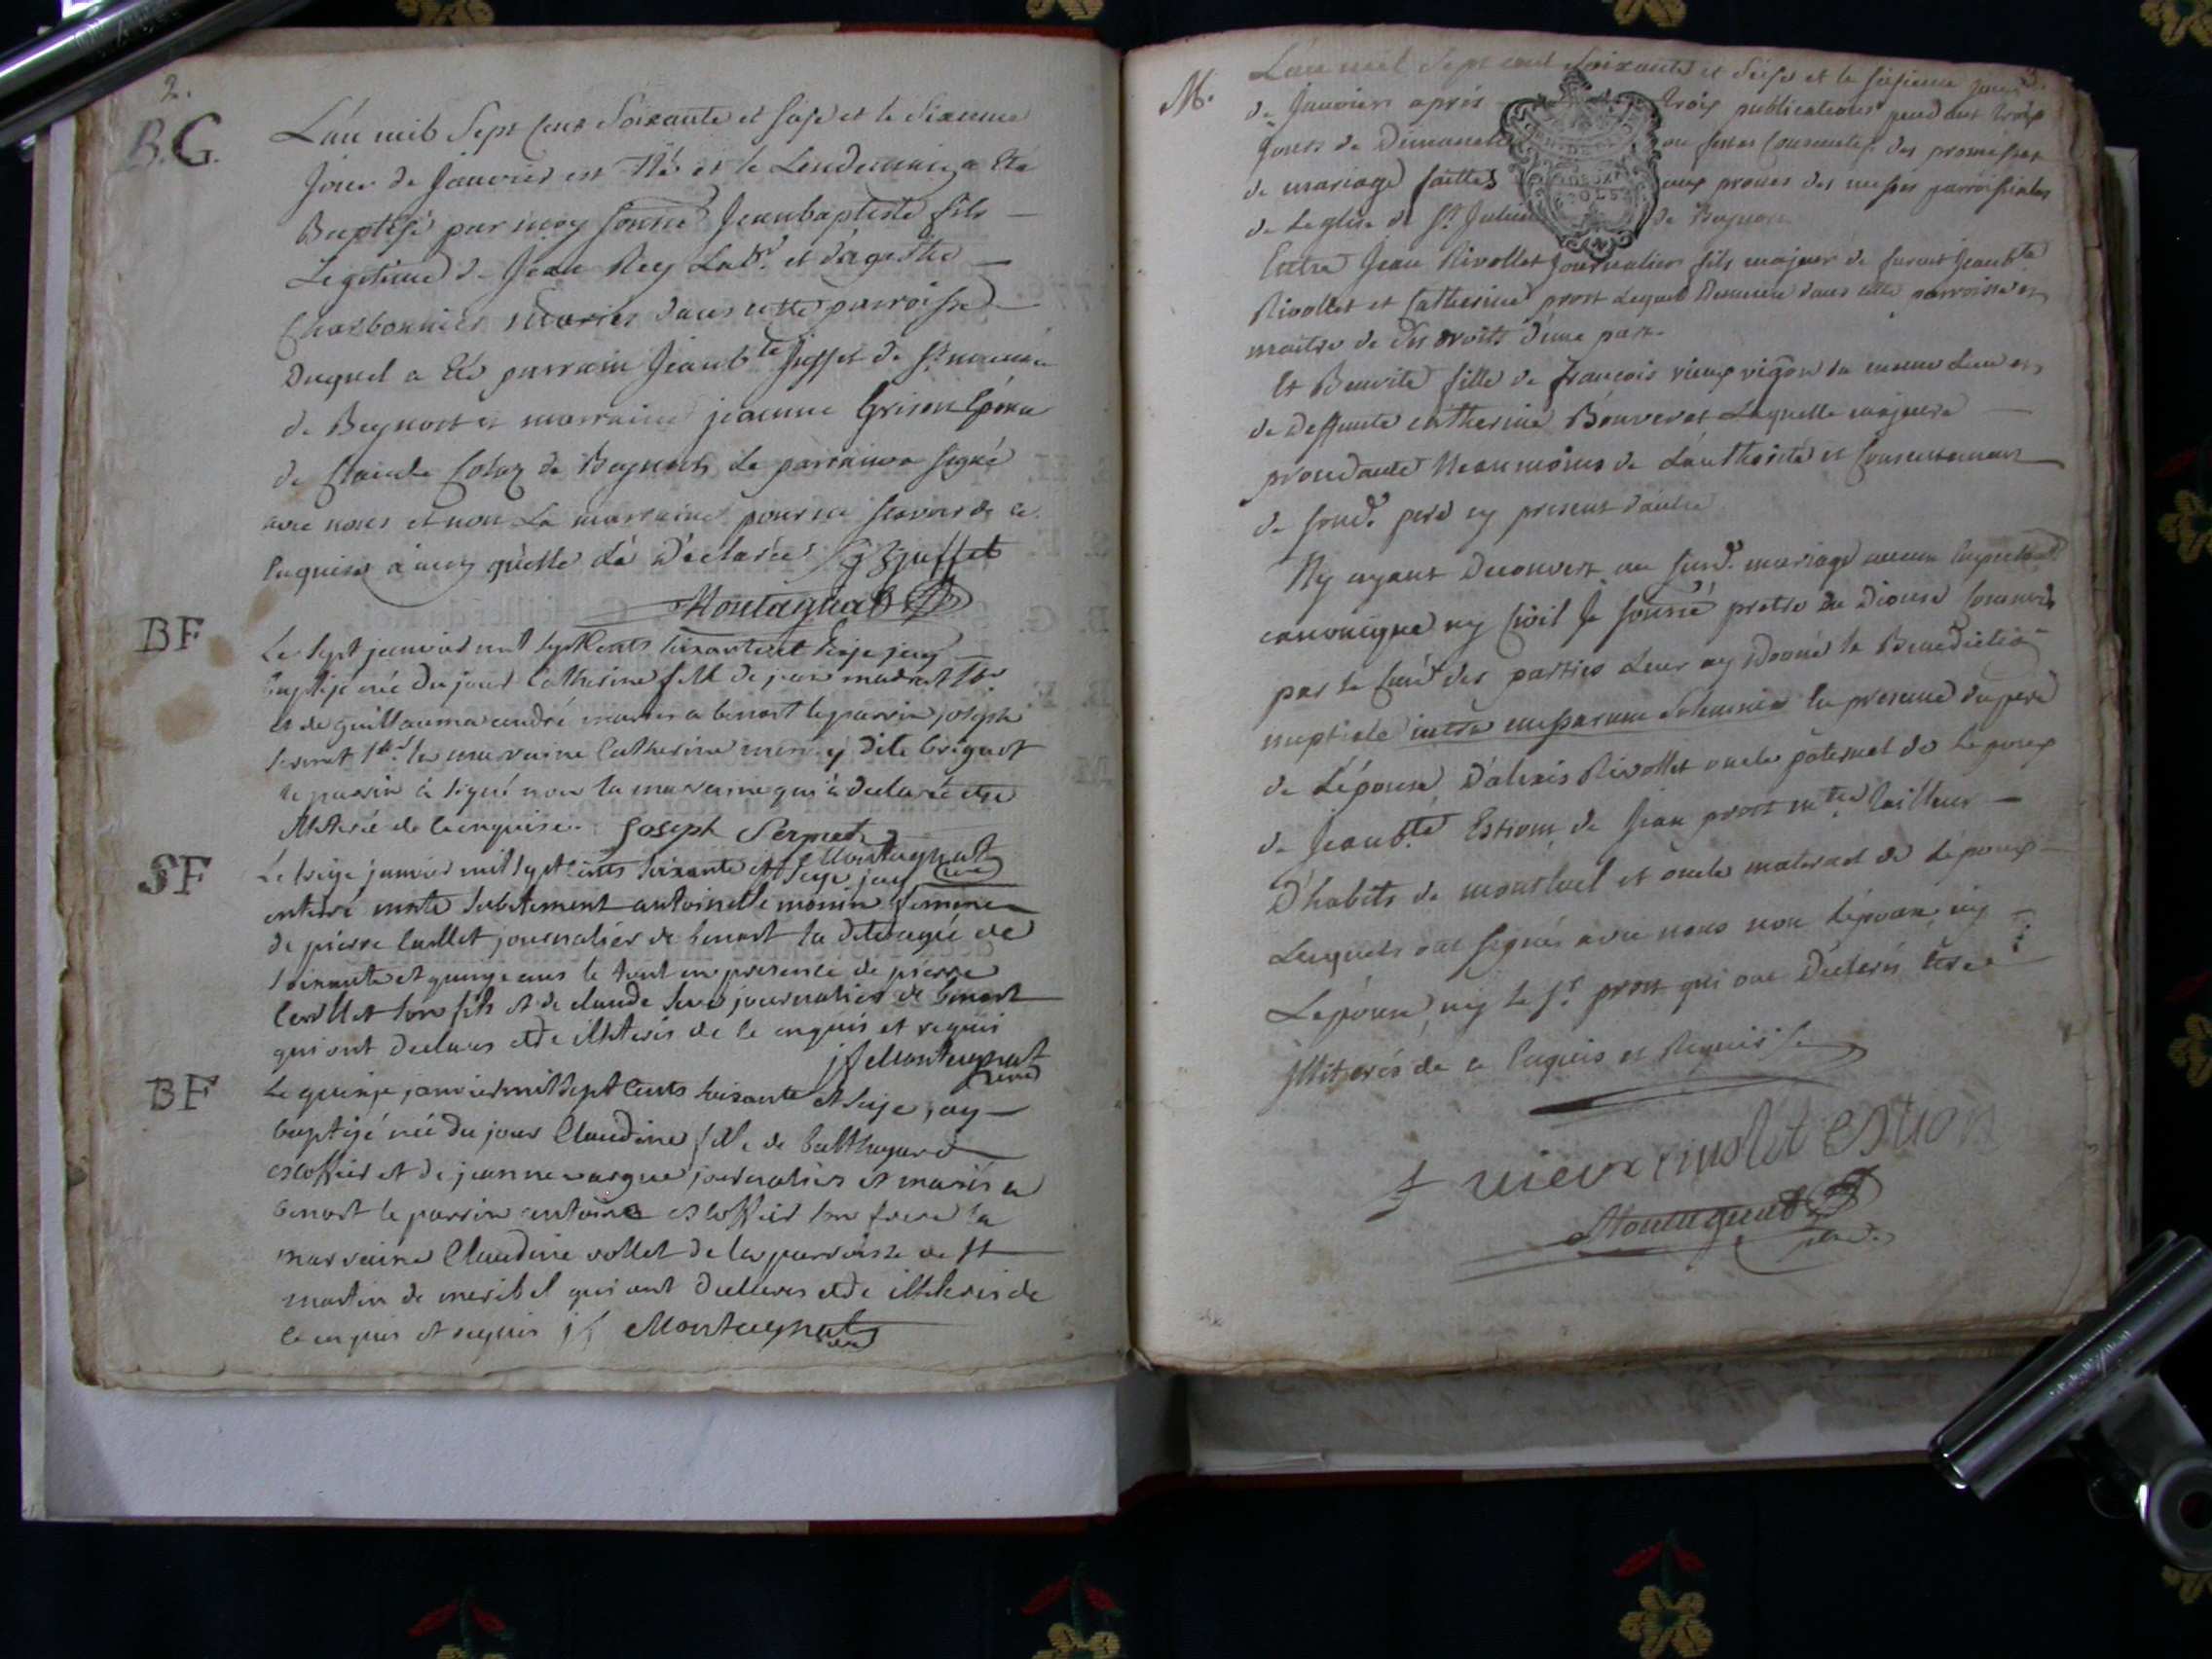 2.
B.G.
L'an mil Sept Cent Soixante et saise et le Sixieme
Jour de Janvier est né et le Lendemain a Eté
Baptisé par moy soussé Jeanbaptiste fils
Legitime de Jean Rey Labr. et
Charbonnier mariés dans cette parroisse
Duquel a Eté parrain Jeanbte Juffet de St maurice
de Beynost et marraine jeanne Grison Epouse
de Claude de Beynost Le parrain a signé
avec nous et non La marraine pour ne scavoir de ce
Enquise ainsy qu'elle l'a Déclarée J B Juffet
Montagnat
BF
Le sept janvier mil sept Cents soixante et seize jay
baptisé née du jour Catherine fille de jean
et de guillauma andré mariés a beinost le parrin joseph
sermet la marraine Catherine dite
le parrin à signé non la marraine qui à declaré etre
illiterée de ce enquise Joseph Sermet
Montagnat
curé
SF
Le treize janvier mil sept cents soixante et seize jay
enterré morte subitement antoinette monin femme
de pierre journalier de beinost la dite agée de
soixante et quinze ans le tout en presence de pierre
son fils et de claude journalier de beinost
qui ont declares etre illiterés de ce enquis et requis
jf Montagnat
curé
BF
Le quinze janvier mil sept Cents soixante et seize jay
baptizé née du jour Claudine fille de balthazard
escoffier et de jeanne journaliers et mariés a
beinost le parrin antoine escoffier son frere la
marraine Claudine vollet de la parroisse de st
martin de miribel qui ont declares etre illiterés de
ce enquis et requis jf Montagnat
curé
3.
M.
L'an mil Sept cent Soixante et seise et le seisieme jour
de Janvier aprés trois publications pendant trois
Jours de Dimanche ou festes Consecutifs des promesses
de mariage faittes aux prones des messes parroissiales
de Leglise de St Julien de Beynost
Entre Jean Rivollet Journalier fils majeur de furent Jeanbte
Rivollet et Catherine prost Lequel Demeure dans cette parroisse et
maitre de ses droits d'une part
Et Benoite fille de François vieux vigon du meme Lieu et
de Deffunte catherine Bouveret Laquelle majeure
procedante Neanmoins de L'authorité et Consentement
de sond. pere icy present d'autre
N'y ayant Decouvert au susd. mariage aucun Empechemt
canonique ny Civil Je soussé pretre du Diocese
par le Curé des parties Leur ay Donné la Benediction
nuptiale intra missarum solemnia En presence du pere
de L'épouse D'alexis Rivollet oncle paternel de Lepoux
de Jeanbte Estion, de Jean prost mtre tailleur
D'habits de montluel et oncle maternel de Lépoux
Lesquels ont signés avec nous non Lépoux, ny
Lepouse ny le Sr prost qui ont Déclarés être
Illiterés de ce Enquis et Requis
f vieux rivolet estion
Montagnat